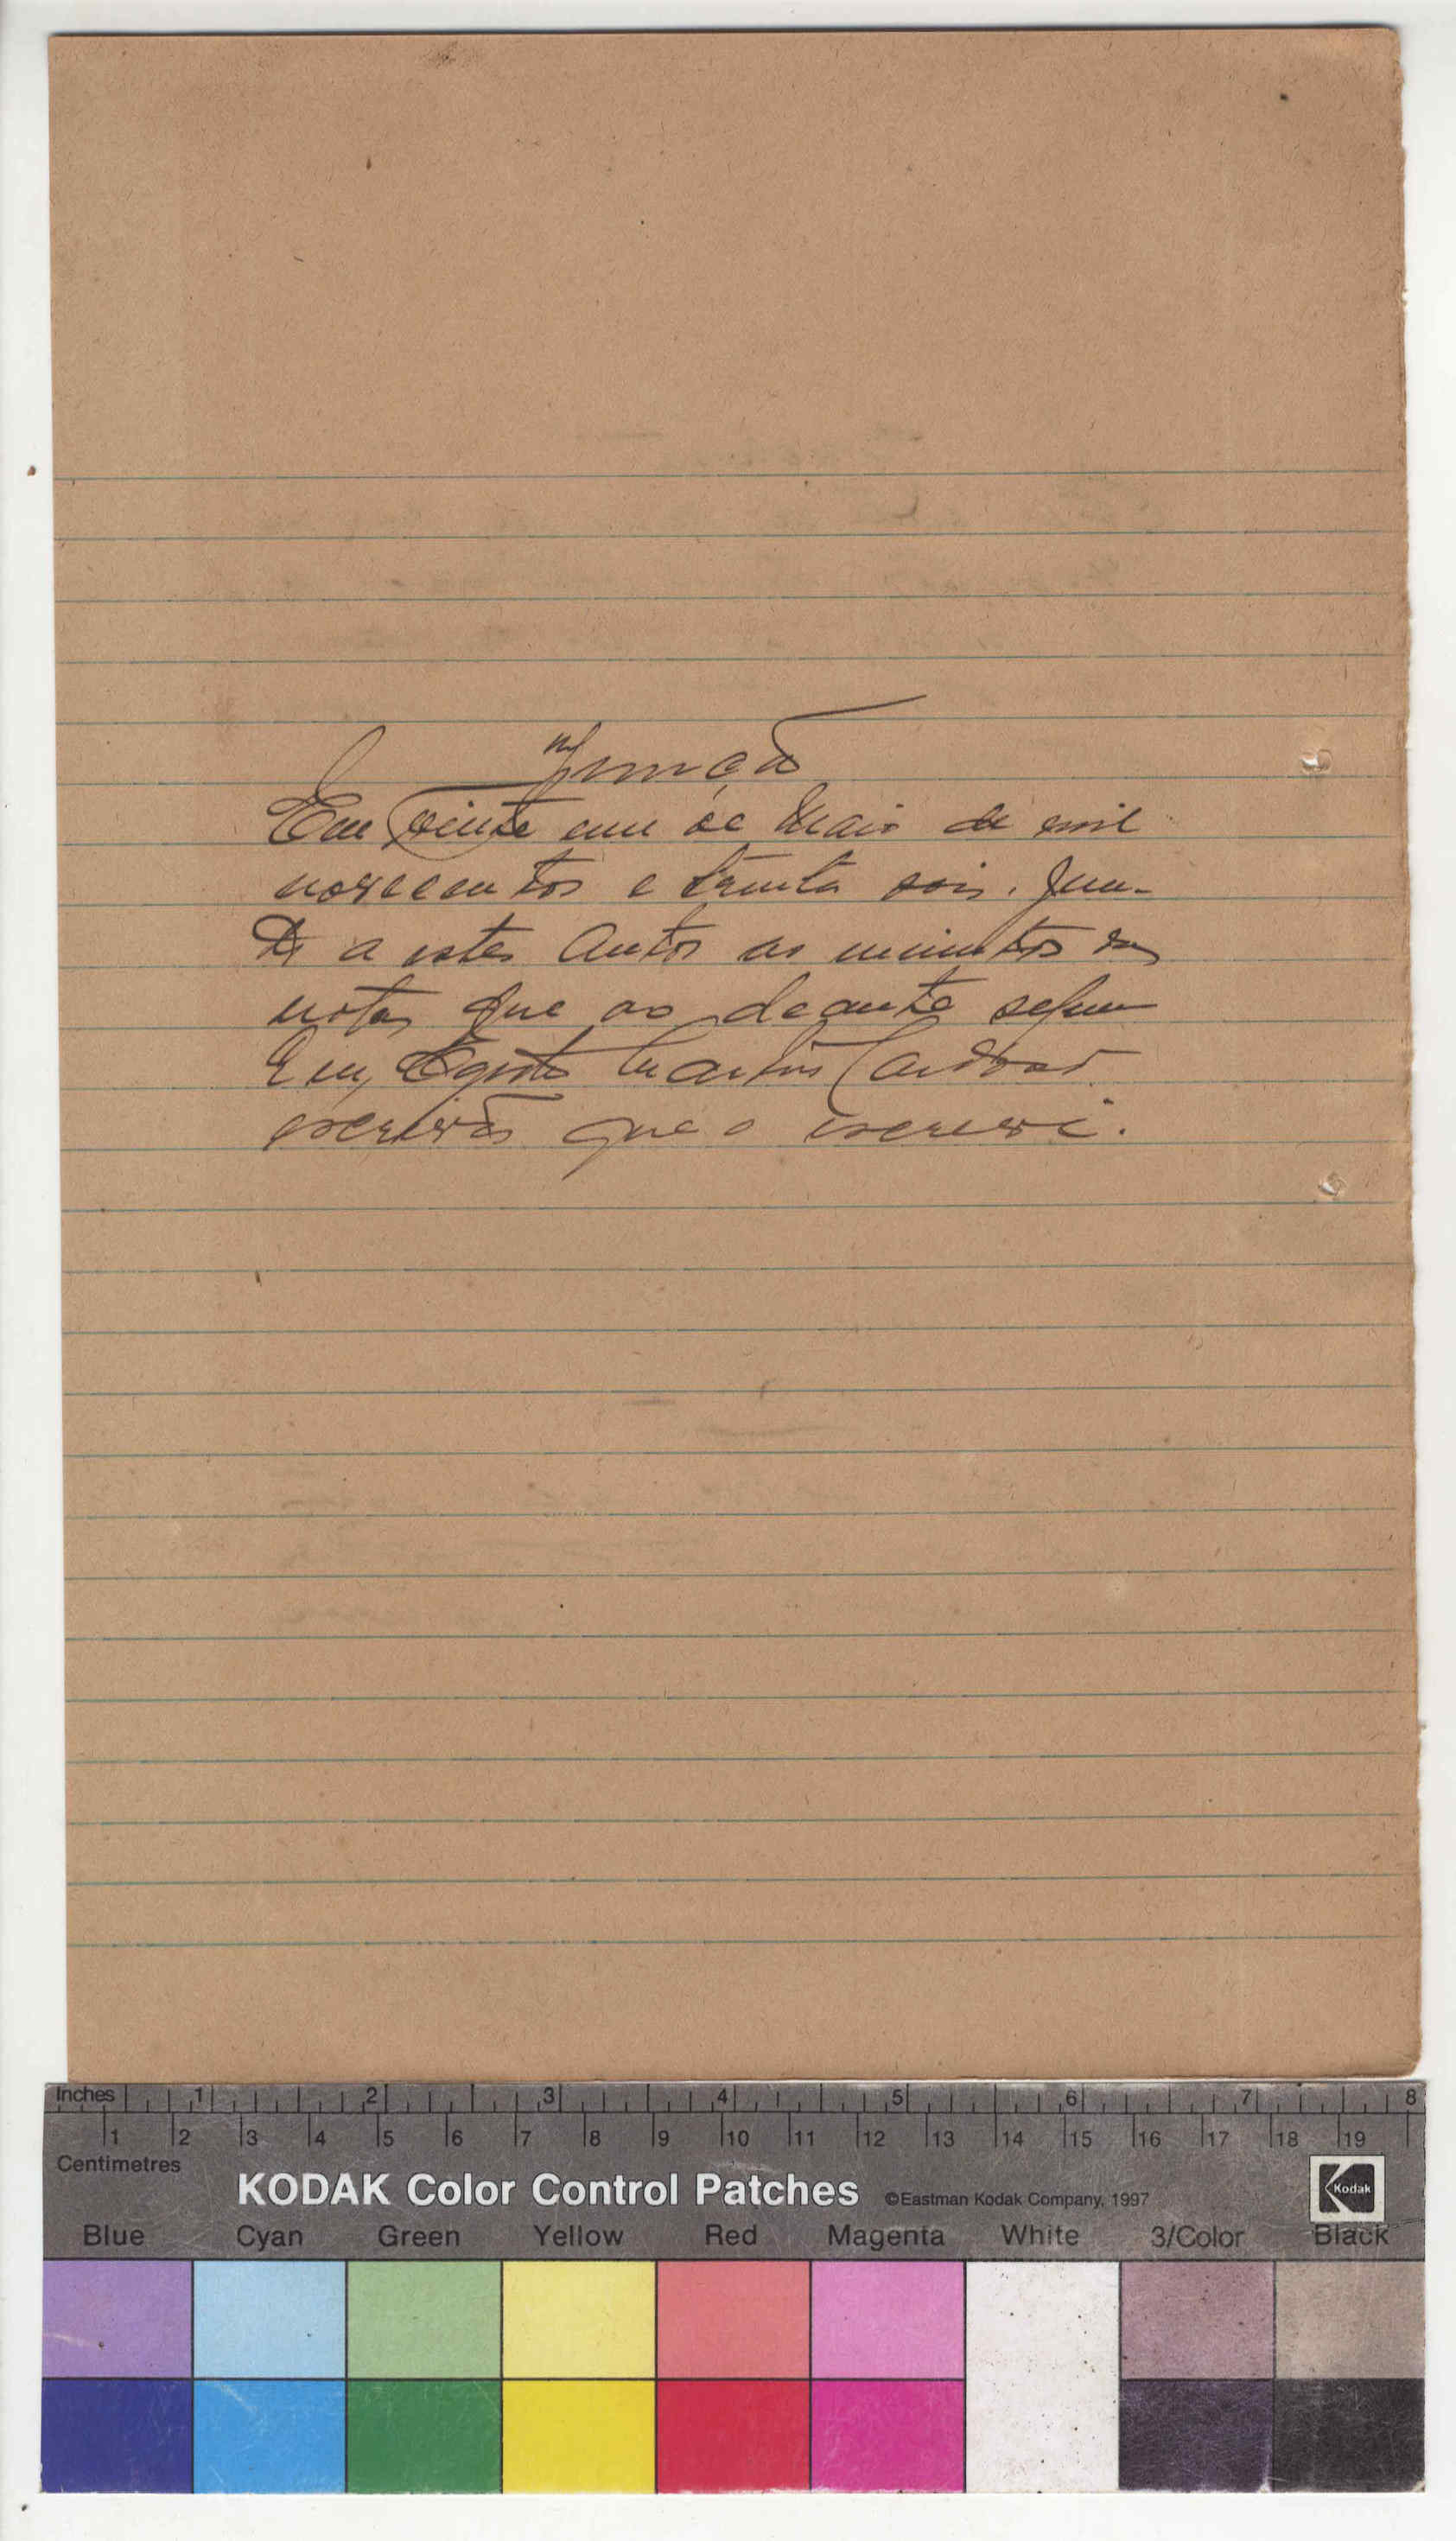 Junção
Em vinte um de Maio de mil
novecentos e trinta dois. Jun-
to a estes Autos as minutas
notas que ao deante seguem
Eu, Martins Cardoso
escrivão que o escrevi.
Inches 1 2 3 4 5 6 7 8
1 2 3 4 5 6 7 8 9 10 11 12 13 14 15 16 17 18 19
Centimetres
KODAK Color Control Patches ©Eastman Kodak Company, 1997 Kodak
Blue Cyan Green Yellow Red Magenta White 3/Color Black